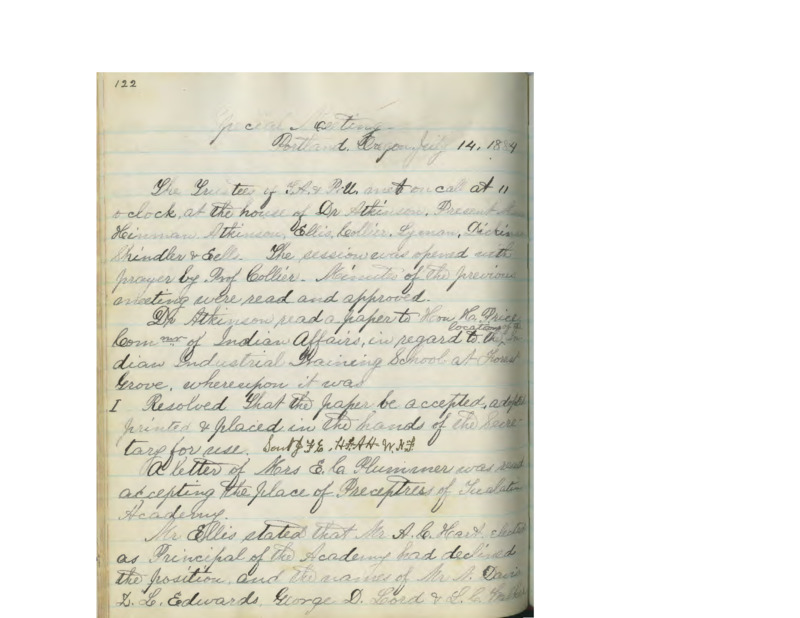 122
Special Meeting
Portland, Oregon July 14, 1884
The Trustees of T.A. & P.U. met on call at 11
o clock, at the house of Dr Atkinson. Present
Hinman Atkinson, Ellis, Collier, Lyman,
Shindler & Eells. The session was opened with
prayer by Prof Collier. Minutes of the previous
meeting were read and approved.
Dr Atkinson read a paper to Hon. H. Price,
location of the
Com mr of Indian Affairs, in regard to the In
dian Industrial Training School at Forest
Grove, whereupon it was
I Resolved That the paper be accepted,
printed & placed in the hands of the Secre-
tary for use.
A letter of Mrs E. C. Plummer was read
accepting the place of Preceptress of Tualatin
Academy.
Mr Ellis stated that Mr A. C. elected
as Principal of the Academy had declined
the position, and the names of Mr N. Davis
Z. L. Edwards, George D. Lord &